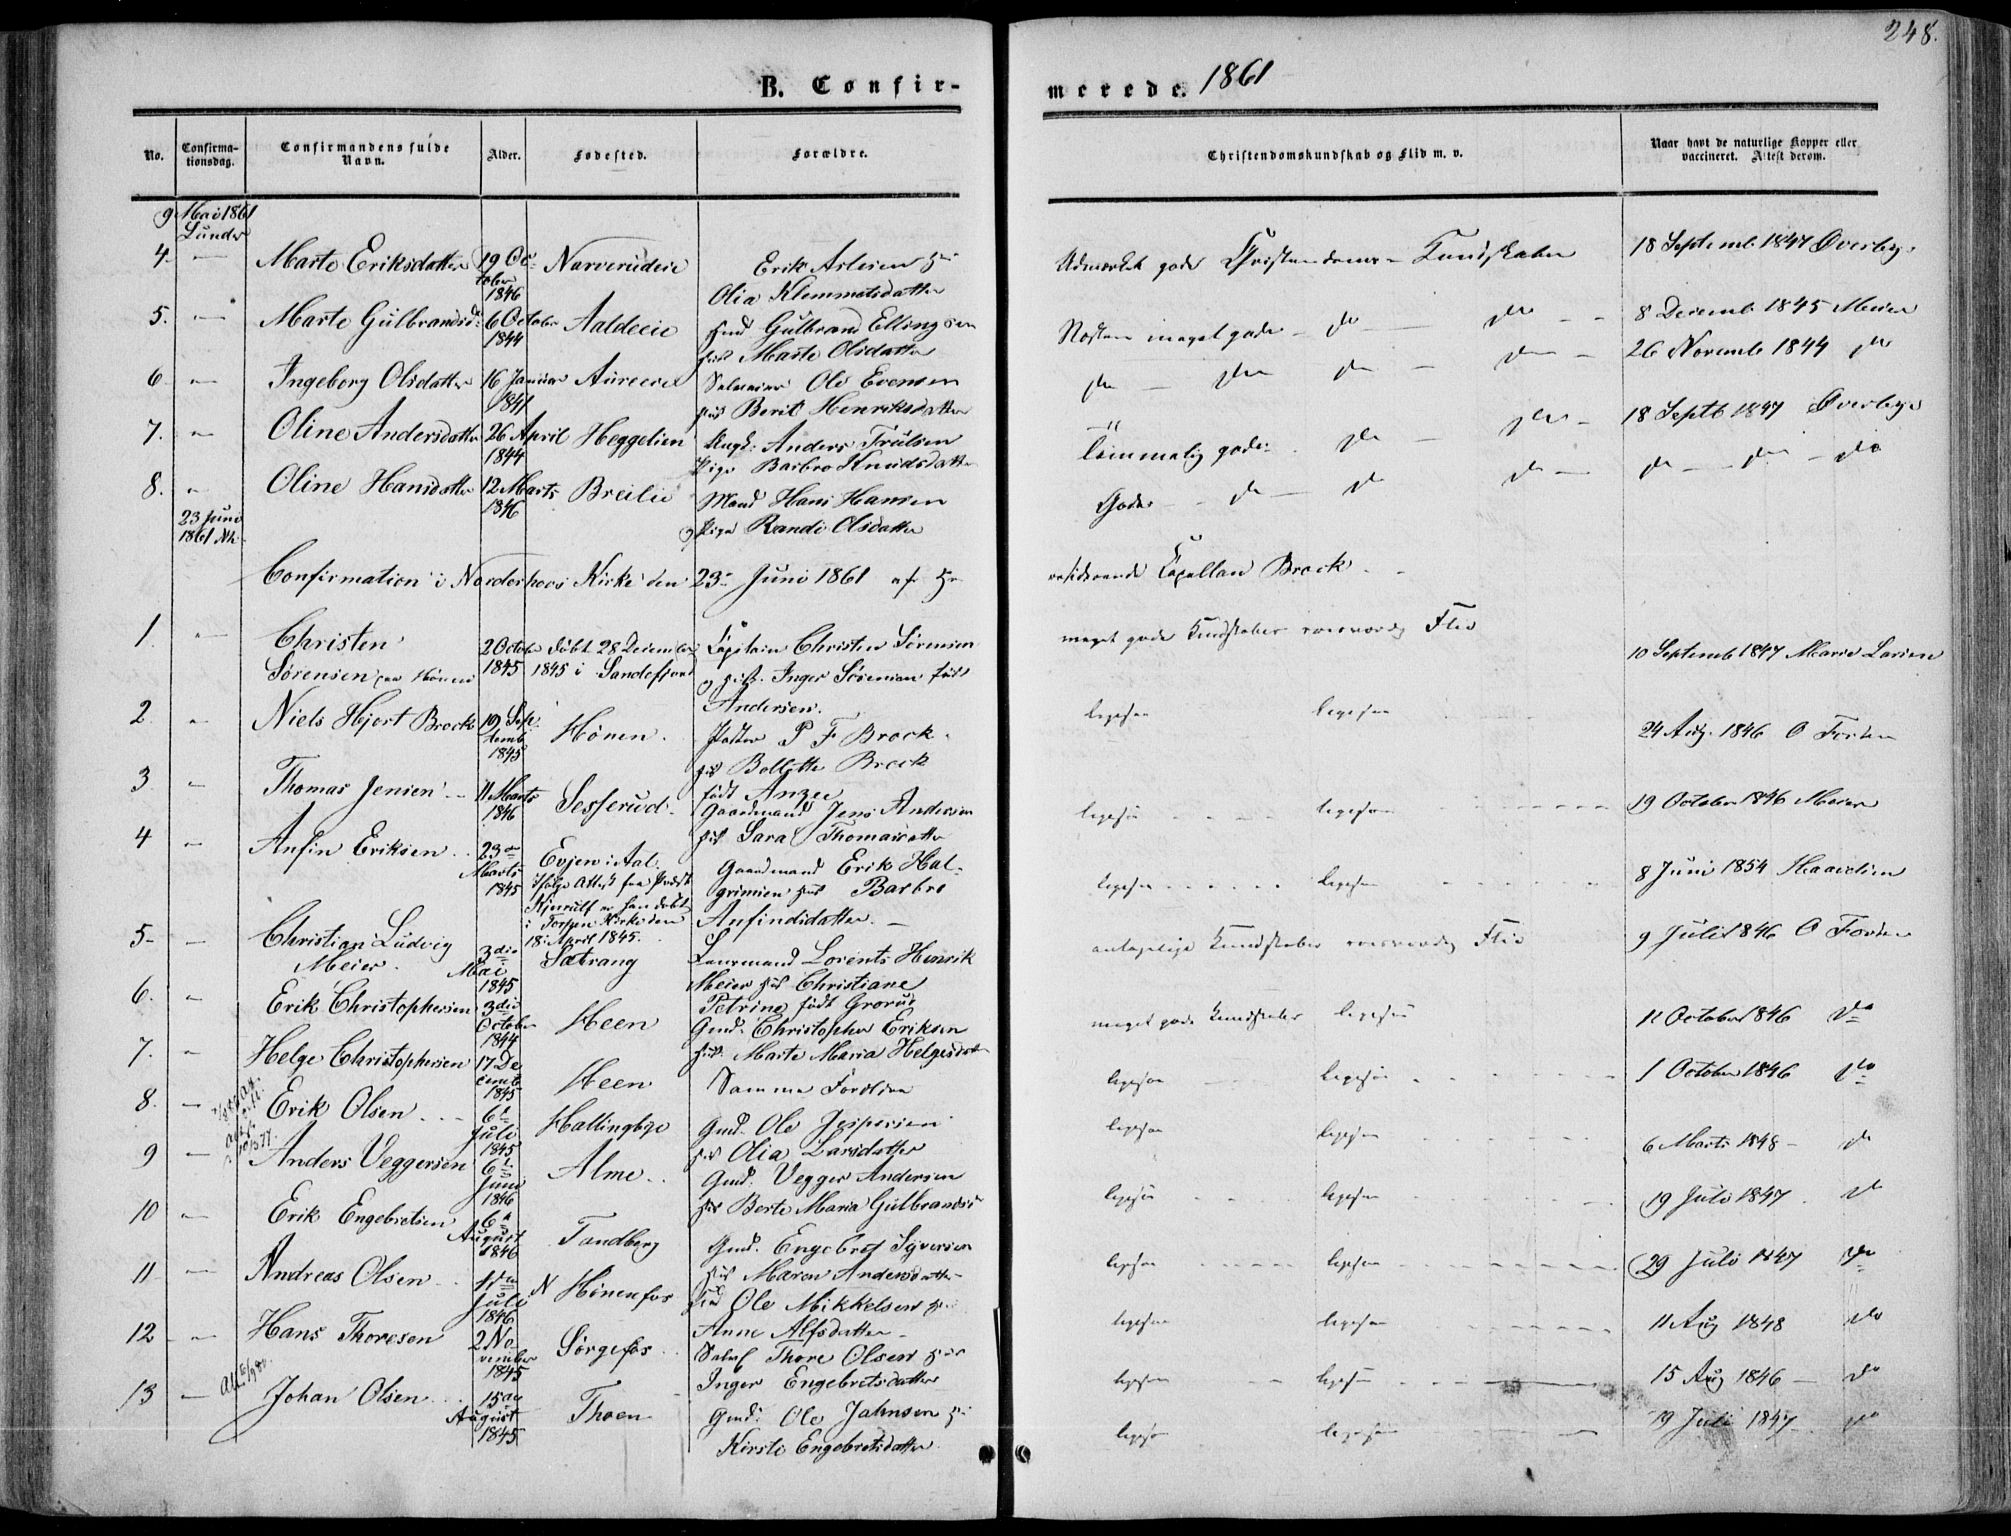 248.
B. Confir-
merede. 1861
No.
Confirma-
tionsdag.
Confirmandens fulde
Navn.
Alder.
Fødested.
Forældre.
Christendomskundskab og Flid m. v.
Naar havt de naturlige Kopper eller
vaccineret. Attest derom.
9 Mai 1861
Lunder
4. Marte Eriksdatter 19 Oc-
tober
1846
Erik Aslesen
Olia Klemmetsdatter
Udmærket gode Christendoms-Kundskaber
18 Septemb 1847 Øverbye
5. Marte Gulbrandsd. 6 October
1844
Gulbrand Ellingsen
Marte Olsdatter
Næsten meget gode do do
8 Decemb 1845 Meier
6. Ingeborg Olsdatter 16 Januar
Ole Evensen
Berit Henriksdatter
do do do do
26 Novemb 1844 do
7. Oline Andersdatter 26 April Heggelien
1844
Anders Trulsen
Pige Barbro Knudsdatter
Temmelig gode do do
18 Septb 1847 Øverbye
8. Oline Hansdatter 12 Marts Breilie
1846
Mand Hans Hansen
Pige Randi Olsdatter
Gode do do do
do do do
23 Juni
1861
Confirmation i Norderhovs Kirke den 23 Juni 1861 af Hr
residerende Capellan Brock
1 Christen
Sørensen paa Hønen
2 October
1845
døbt 28 December
1845 i Sandefjord
Capitain Christen Sørensen
Inger Sørensen født
Andersen.
meget gode Kundskaber roesværdig Flid
10 Septemb 1847 Marie Larsen
2 Niels Hjort Brock 19 Sep-
temb
1845
Hønen.
P F Brock
Brock
født
ligesaa ligesaa
24 Aug. 1846 O Forten
3 Thomas Jensen 11 Marts
1846
Sesserud.
Gaardmand Jens Andersen
Sara Thomasdatter
ligesaa ligesaa
19 October 1846 Meier
4 Anfin Eriksen 23
Marts
1845
Evjen i Aal.
Ifølge Attest fra Præst
er han døbt
i Torpen Kirke den
18 April 1845.
Gaardmand Erik Hal-
grimsen Barbro
Anfindsdatter
ligesaa ligesaa
8 Juni 1854
5 Christian Ludvig
Meier.
3die
Mai
1845
Sætrang
Lorents Henrik
Meier Christiane
Petrine født Grorud
antagelige Kundskaber roesværdig Flid
9 Juli 1846 O Forten
6. Erik Christophersen 3die
October
1844
Heen
Gmd. Christopher Eriksen
Marte Maria Helgesdatter
meget gode Kundskaber ligesaa
11 October 1846 do
7. Helge Christophersen 17 De-
cemb
1845
Heen
Samme Forældre
ligesaa ligesaa
1 October 1846 do
8. Erik Olsen 6
Juli
1845
Hallingbye
Gmd. Ole Jespersen
Olia Larsdatter
ligesaa ligesaa
6 Marts 1848 do
9 Anders Veggersen 6
Juni
1846
Alme
Gmd. Vegger Andersen
Berte Maria Gulbrandsd
ligesaa ligesaa
19 Juli 1847 do
10 Erik Engebretsen 6
August
1846
Tandberg
Gmd. Engebret Syversen
Maren Andersdatter
ligesaa ligesaa
29 Juli 1847 do
11 Andreas Olsen
Juli
1846
N Hønenfos
Ole Mikkelsen
Anne Alfsdatter
ligesaa ligesaa
11 Aug 1848 do
12 Hans Thoresen 2 No-
vember
1845
Sørgefos
Thore Olsen
Inger Engebretsdatter
ligesaa ligesaa
15 Aug 1846 do
13 Johan Olsen 15
August
1845
Thoen
Gmd: Ole Jahnsen
Kirsti Engebretsdatter
ligesaa ligesaa
19 Juli 1847 do